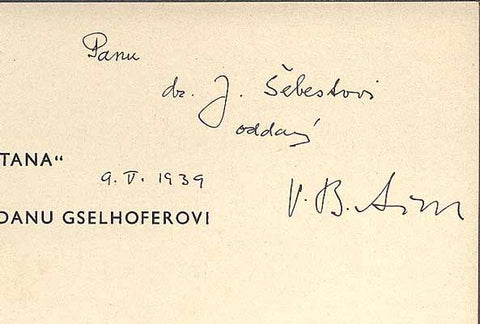 Panu
dr. J. Šebestovi
oddaný
TANA“
9. V. 1939
V. B. Aim
DANU GSELHOFEROVI